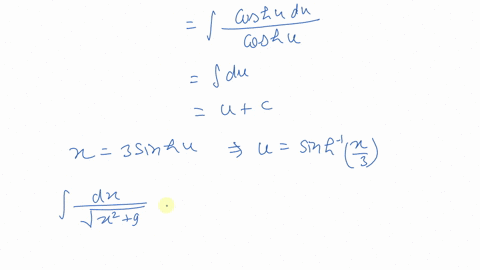 = ∫ coshu du / coshu
= ∫ du
= u + c
x = 3 sinhu ⇒ u = sinh⁻¹(x/3)
∫ dx / √(x²+9)